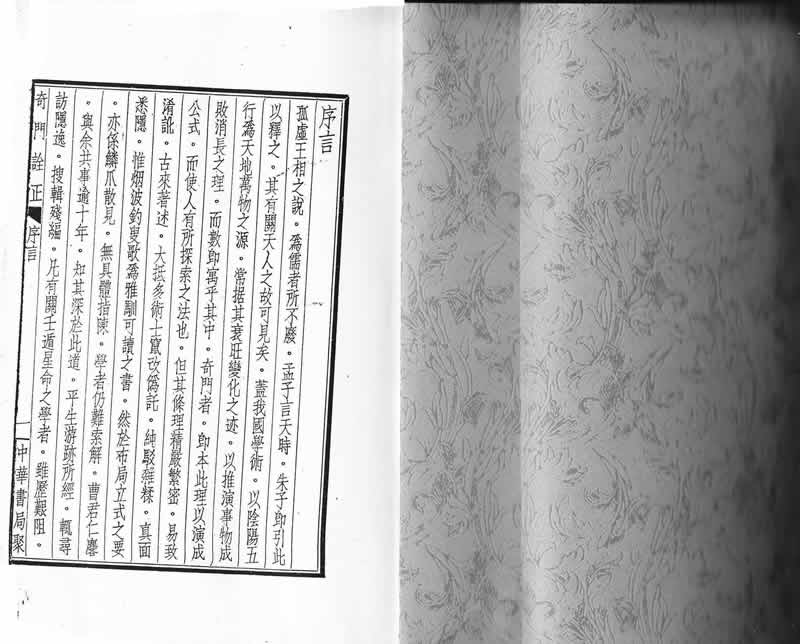 序言
孤虛王相之說。為儒者所不廢。孟子言天時。朱子卽引此
以釋之。其有關天人之故可見矣。蓋我國學術。以陰陽五
行為天地萬物之源。常据其衰旺變化之迹。以推演事物成
敗消長之理。而數卽寓乎其中。奇門者。卽本此理以演成
公式。而使人有所探索之法也。但其條理精嚴繁密。易致
淆訛。古來著述。大抵多術士竄改偽託。純駁雜糅。真面
悉隱。惟烟波釣叟歌為雅馴可讀之書。然於布局立式之要
。亦係鱗爪散見。無具體指陳。學者仍難索解。曹君仁麐
。與余共事逾十年。知其深於此道。平生游跡所經。輒尋
訪隱逸。搜輯殘編。凡有關壬遁星命之學者。雖歷艱阻。
奇門詮正 序言 一 中華書局聚